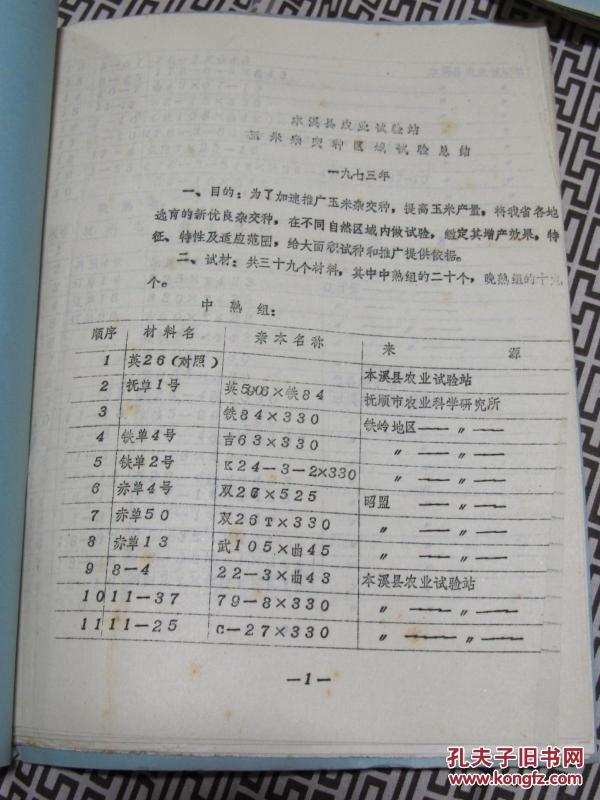 本溪县农业试验站
玉米杂交种区域试验总结
一九七三年
一、目的：为了加速推广玉米杂交种，提高玉米产量，将我省各地
选育的新优良杂交种，在不同自然区域内做试验，鉴定其增产效果，特
征、特性及适应范围，给大面积试种和推广提供依据。
二、试材：共三十九个材料，其中中熟组的二十个，晚熟组的十九
个。
中熟组：
顺序 材料名 亲本名称 来源
1 英26（对照） 本溪县农业试验站
2 抚单1号 英5906×铁84 抚顺市农业科学研究所
3 铁84×330 铁岭地区—〃—
4 铁单4号 吉63×330 〃—〃—
5 铁单2号 K24-3-2×330 〃—〃—
6 赤单4号 双26×525 昭盟—〃—
7 赤单50 双26T×330 〃—〃—
8 赤单13 武105×曲45 〃—〃—
9 8-4 22-3×曲43 本溪县农业试验站
10 11-37 79-8×330 〃—〃—
11 11-25 C-27×330 〃—〃—
—1—
孔夫子旧书网
www.kongfz.com